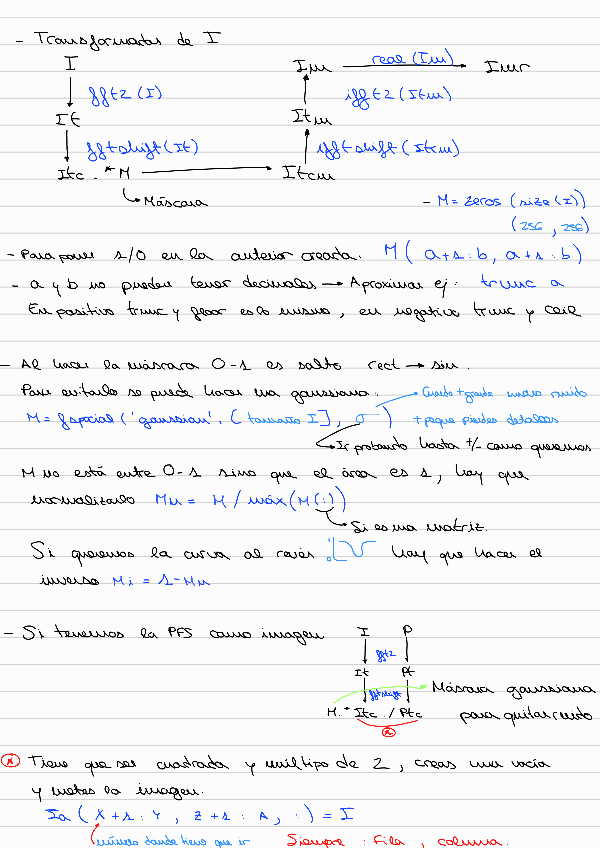 - Transformadas de I
I
fft2 (I)
It
fftshift (It)
Itc .* M
Máscara
Itcm
ifftshift (Itcm)
Itm
ifft2 (Itm)
Im
real (Im)
Imr
- M = zeros (size (I))
(256, 256)
- Para poner 1/0 en la anterior creada. M( a+1 : b, a+1 : b)
- a y b no pueden tener decimales → Aproximar ej: trunc a
En positivo trunc y floor es lo mismo, en negativo trunc y ceil
- Al hacer la máscara 0-1 es salto rect → sin.
Para evitarlo se puede hacer una gaussiana.
M = fspecial ('gaussian', [tamaño I], σ)
Cuanto + grande menos ruido
+ peque pierdes detalles
Ir probando hasta +/- como queremos
M no está entre 0-1 sino que el área es 1, hay que
normalizarlo Mn = M / máx(M(:))
Si es una matriz.
Si queremos la curva al revés hay que hacer el
inverso Mi = 1-Mn
- Si tenemos la PFS como imagen
I P
fft2
It Pt
fftshift
M.* Itc ./ Ptc
Máscara gaussiana
para quitar ruido
* Tiene que ser cuadrada y múltipo de 2, creas una vacía
y metes la imagen.
Ia ( X+1 : Y, Z+1 : A, :) = I
número donde tiene que ir
Siempre : Fila, columna.